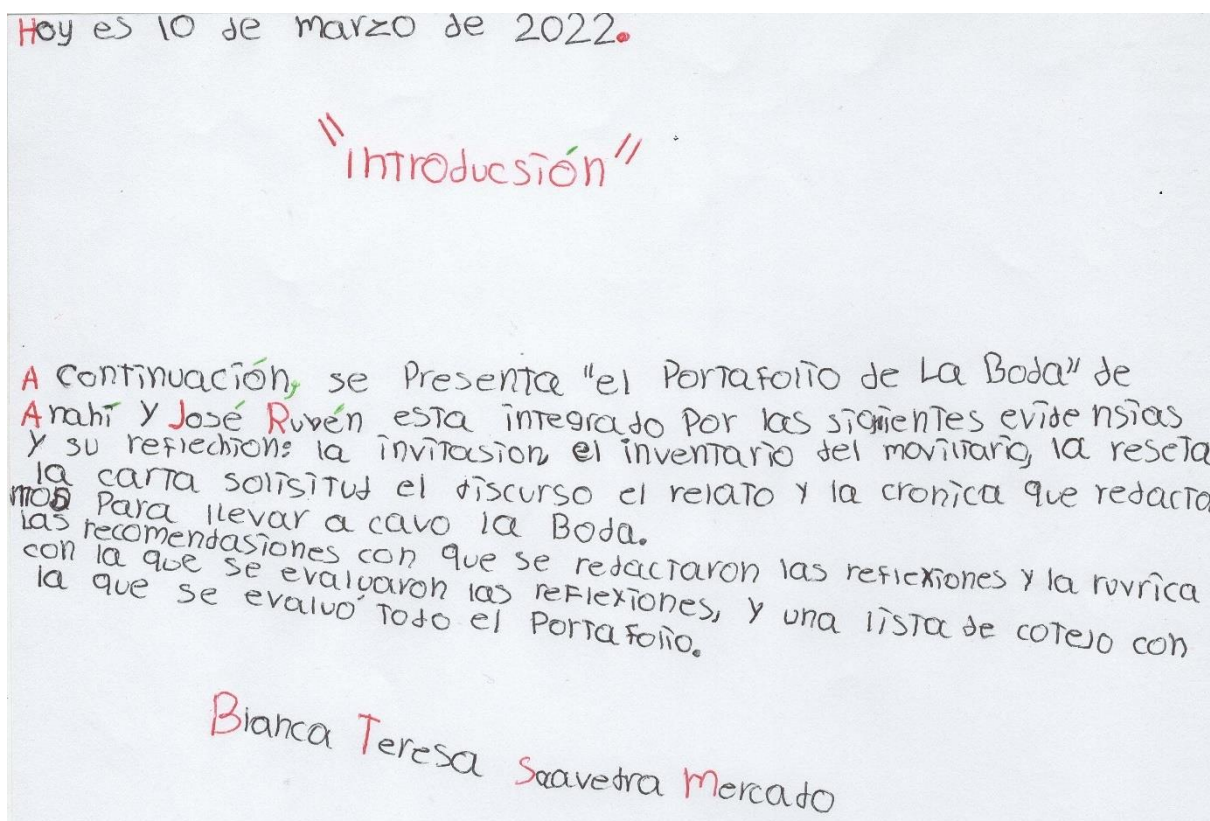 Hoy es 10 de marzo de 2022.
"introducsión"
A continuación, se Presenta "el Portafolio de La Boda" de
Anahi y José Ruvén esta integrado Por las siguientes evidensias
y su reflechion: la invitasion el inventario del moviliario, la reseta
la carta solisitud el discurso el relato y la cronica que redacta
mos Para llevar a cavo la Boda.
Las recomendasiones con que se redactaron las reflexiones y la ruvrica
con la que se evaluaron las reflexiones, y una lista de cotejo con
la que se evaluó todo el Portafolio.
Bianca Teresa Saavedra Mercado